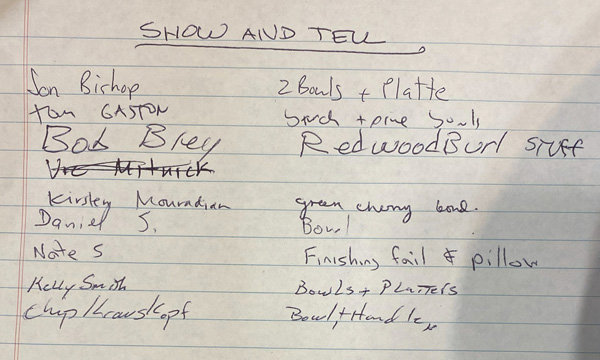 SHOW AND TELL
Jon Bishop 2 Bowls + Platte
Tom GASTON birch + pine bowls
Bob Brey Redwood Burl STUFF
Mitnick
Kirsten Mouradian green cherry bowl.
Daniel S. Bowl
Nate S Finishing fail & pillow
Kelly Smith Bowls + Platters
Chip Krauskopf Bowl +